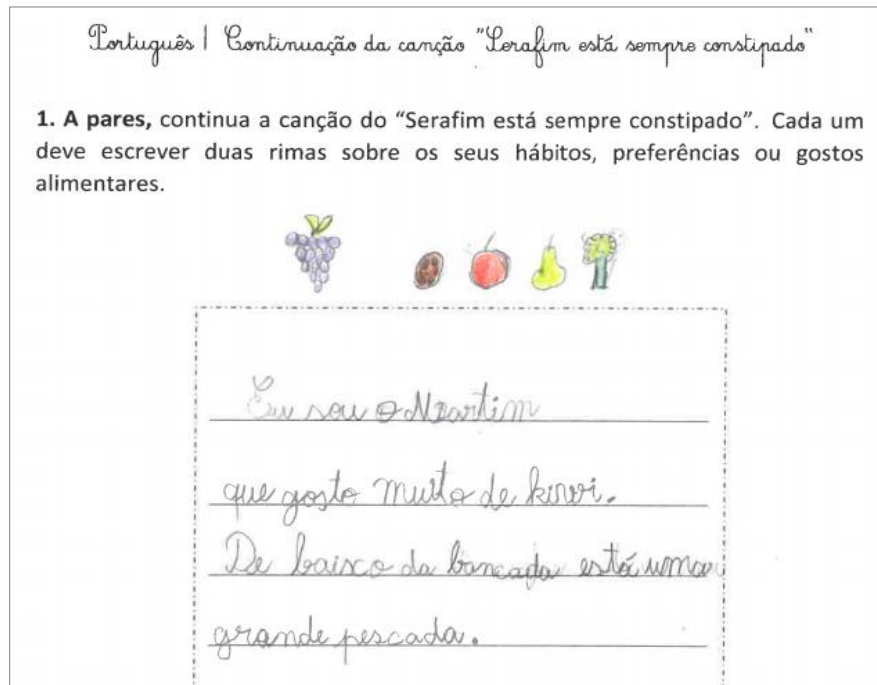 Português | Continuação da canção "Serafim está sempre constipado"
1. A pares, continua a canção do “Serafim está sempre constipado”. Cada um
deve escrever duas rimas sobre os seus hábitos, preferências ou gostos
alimentares.
Eu sou o Martim
que gosto muito de kiwi.
De baixo da bancada está uma
grande pescada.